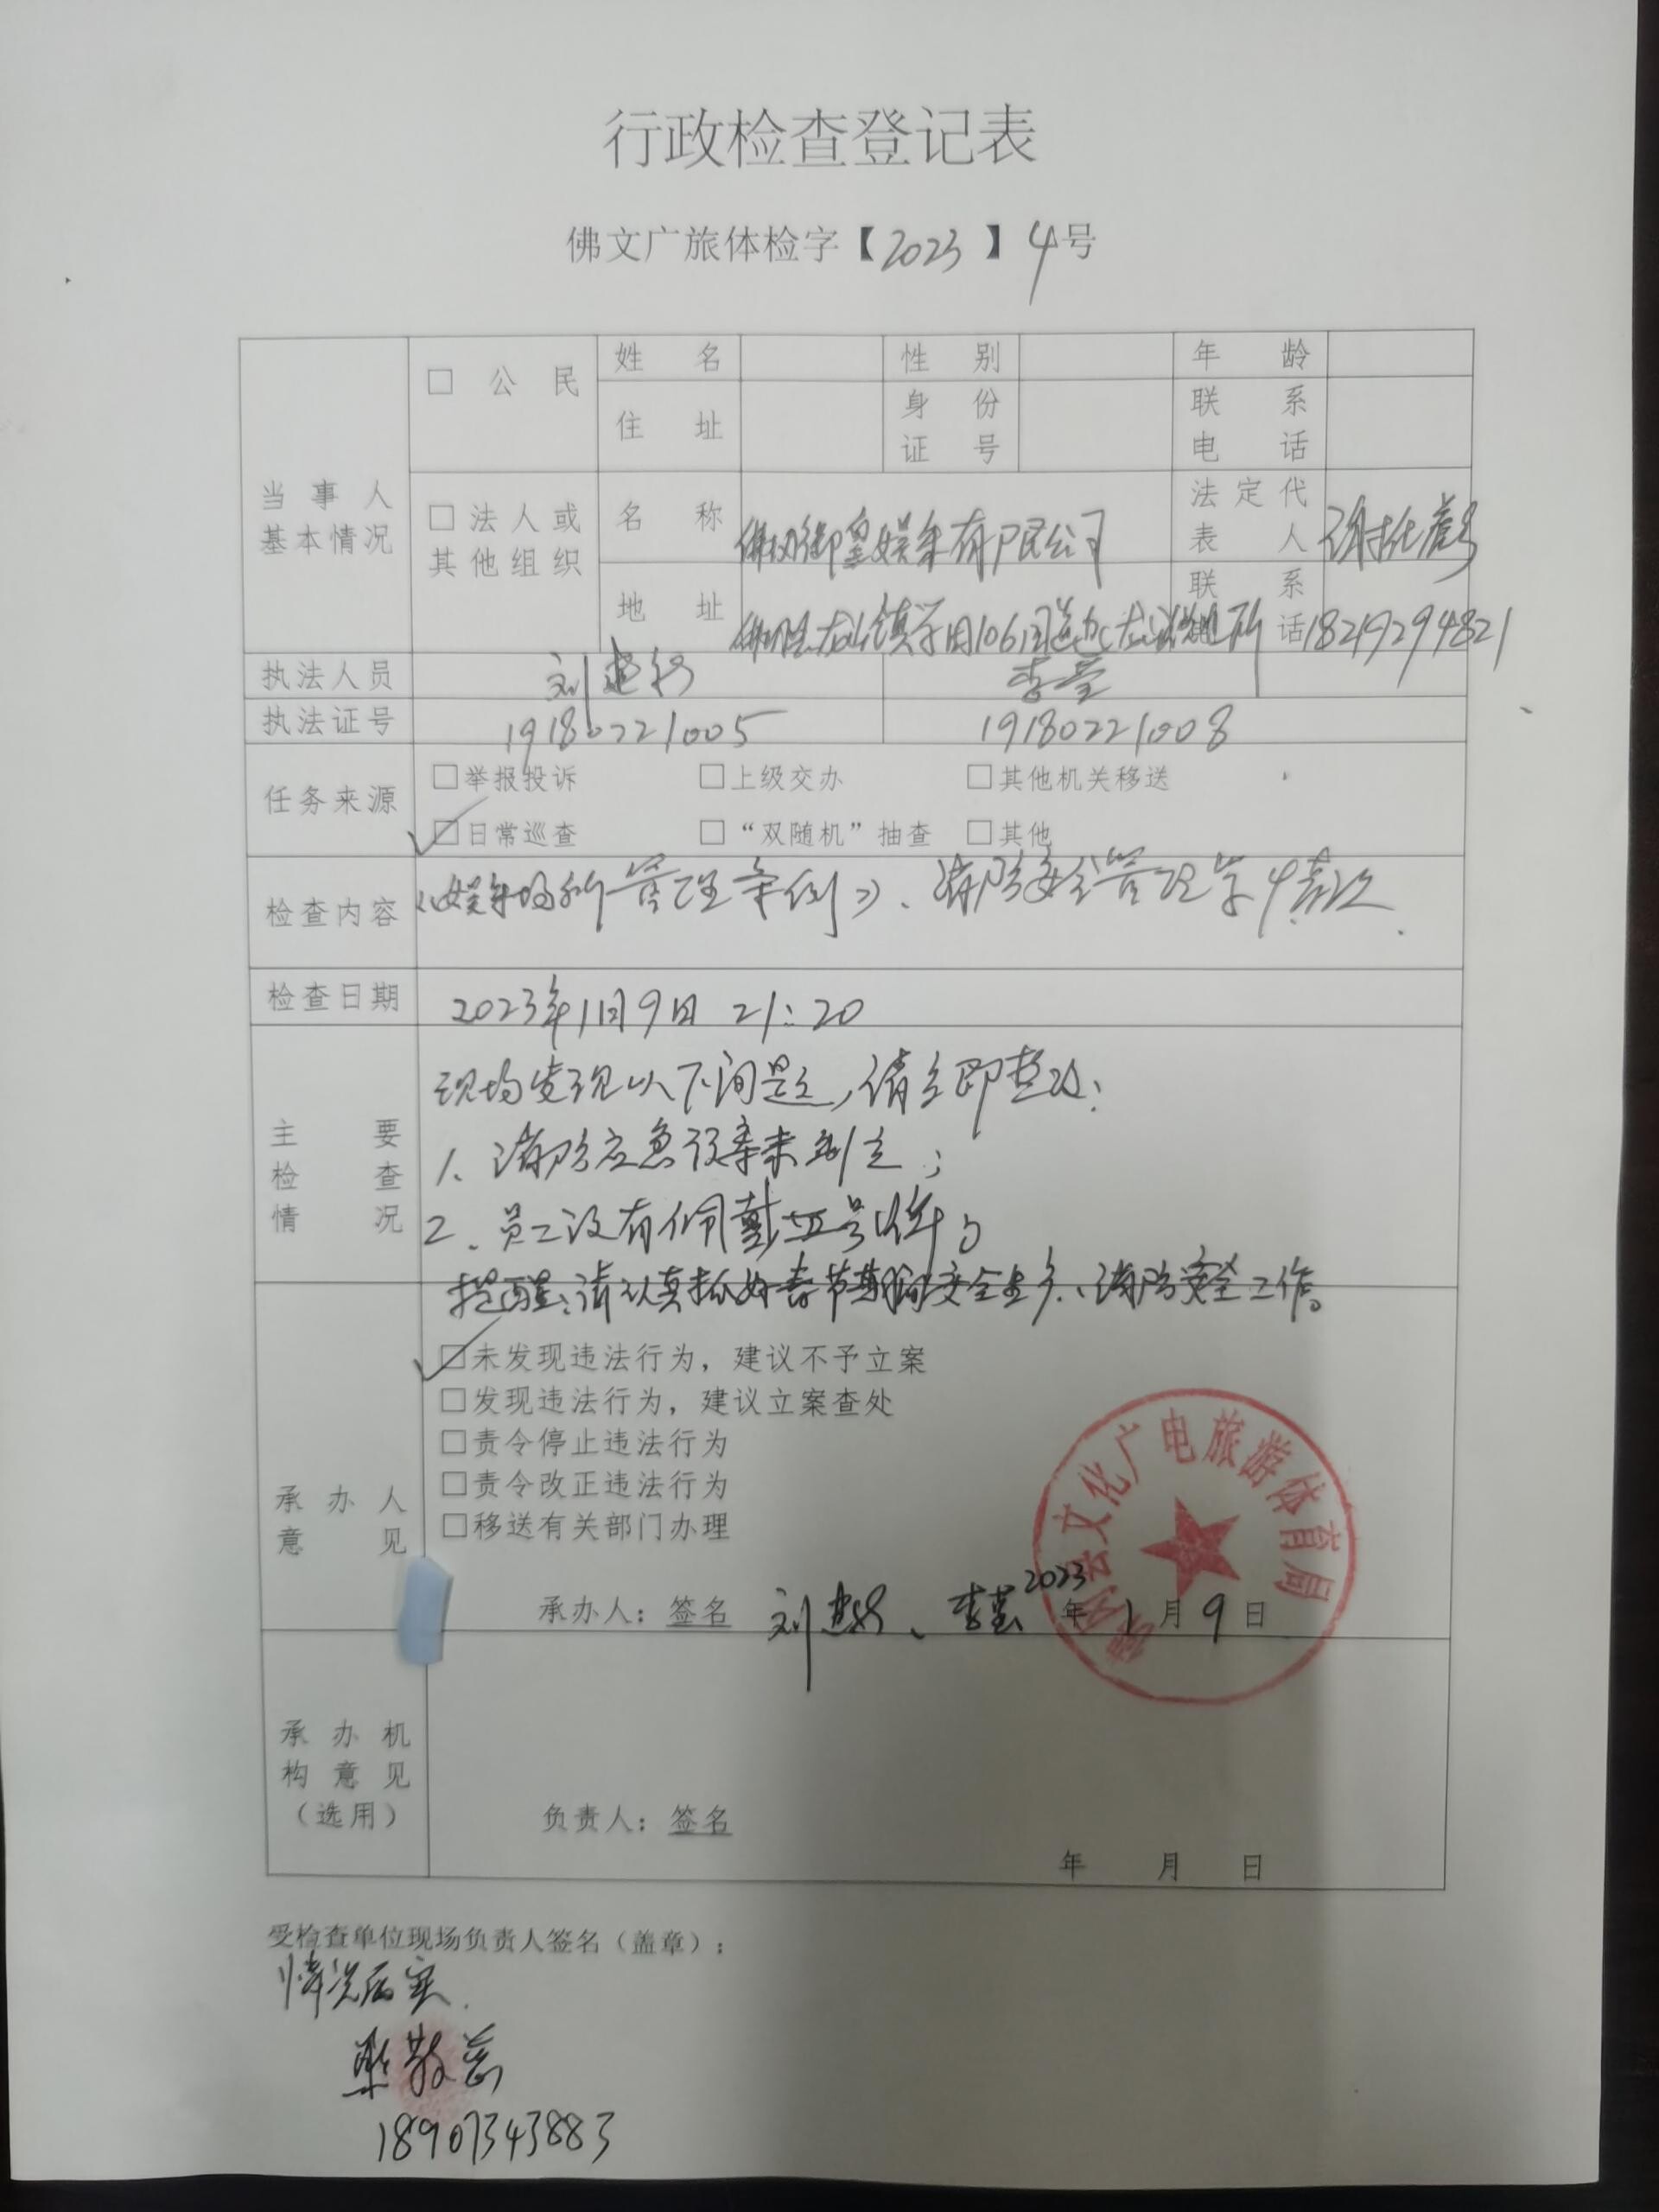 行政检查登记表
佛文广旅体检字【2023】4号
当事人基本情况
□ 公民
姓名
性别
年龄
住址
身份证号
联系电话
□ 法人或其他组织
名称
佛冈御皇娱乐有限公司
法定代表人
谢
地址
佛冈县龙山镇学田106国道边
联系
话
18219294821
执法人员
刘
李莹
执法证号
19180221005
19180221008
任务来源
□举报投诉 □上级交办 □其他机关移送
☑日常巡查 □“双随机”抽查 □其他
检查内容
《娱乐场所管理条例》、消防安全管理等情况.
检查日期
2023年1月9日 21:20
主要检查情况
现场发现以下问题,请立即整改:
1、消防应急预案未制定;
2、员工没有佩戴工号牌。
提醒:请认真抓好春节期间安全生产、消防安全工作。
承办人意见
☑未发现违法行为,建议不予立案
□发现违法行为,建议立案查处
□责令停止违法行为
□责令改正违法行为
□移送有关部门办理
承办人:签名 刘 、李莹 2023年1月9日
佛冈县文化广电旅游体育局
承办机构意见(选用)
负责人:签名
年 月 日
受检查单位现场负责人签名(盖章):
情况属实.
敬
18907343883